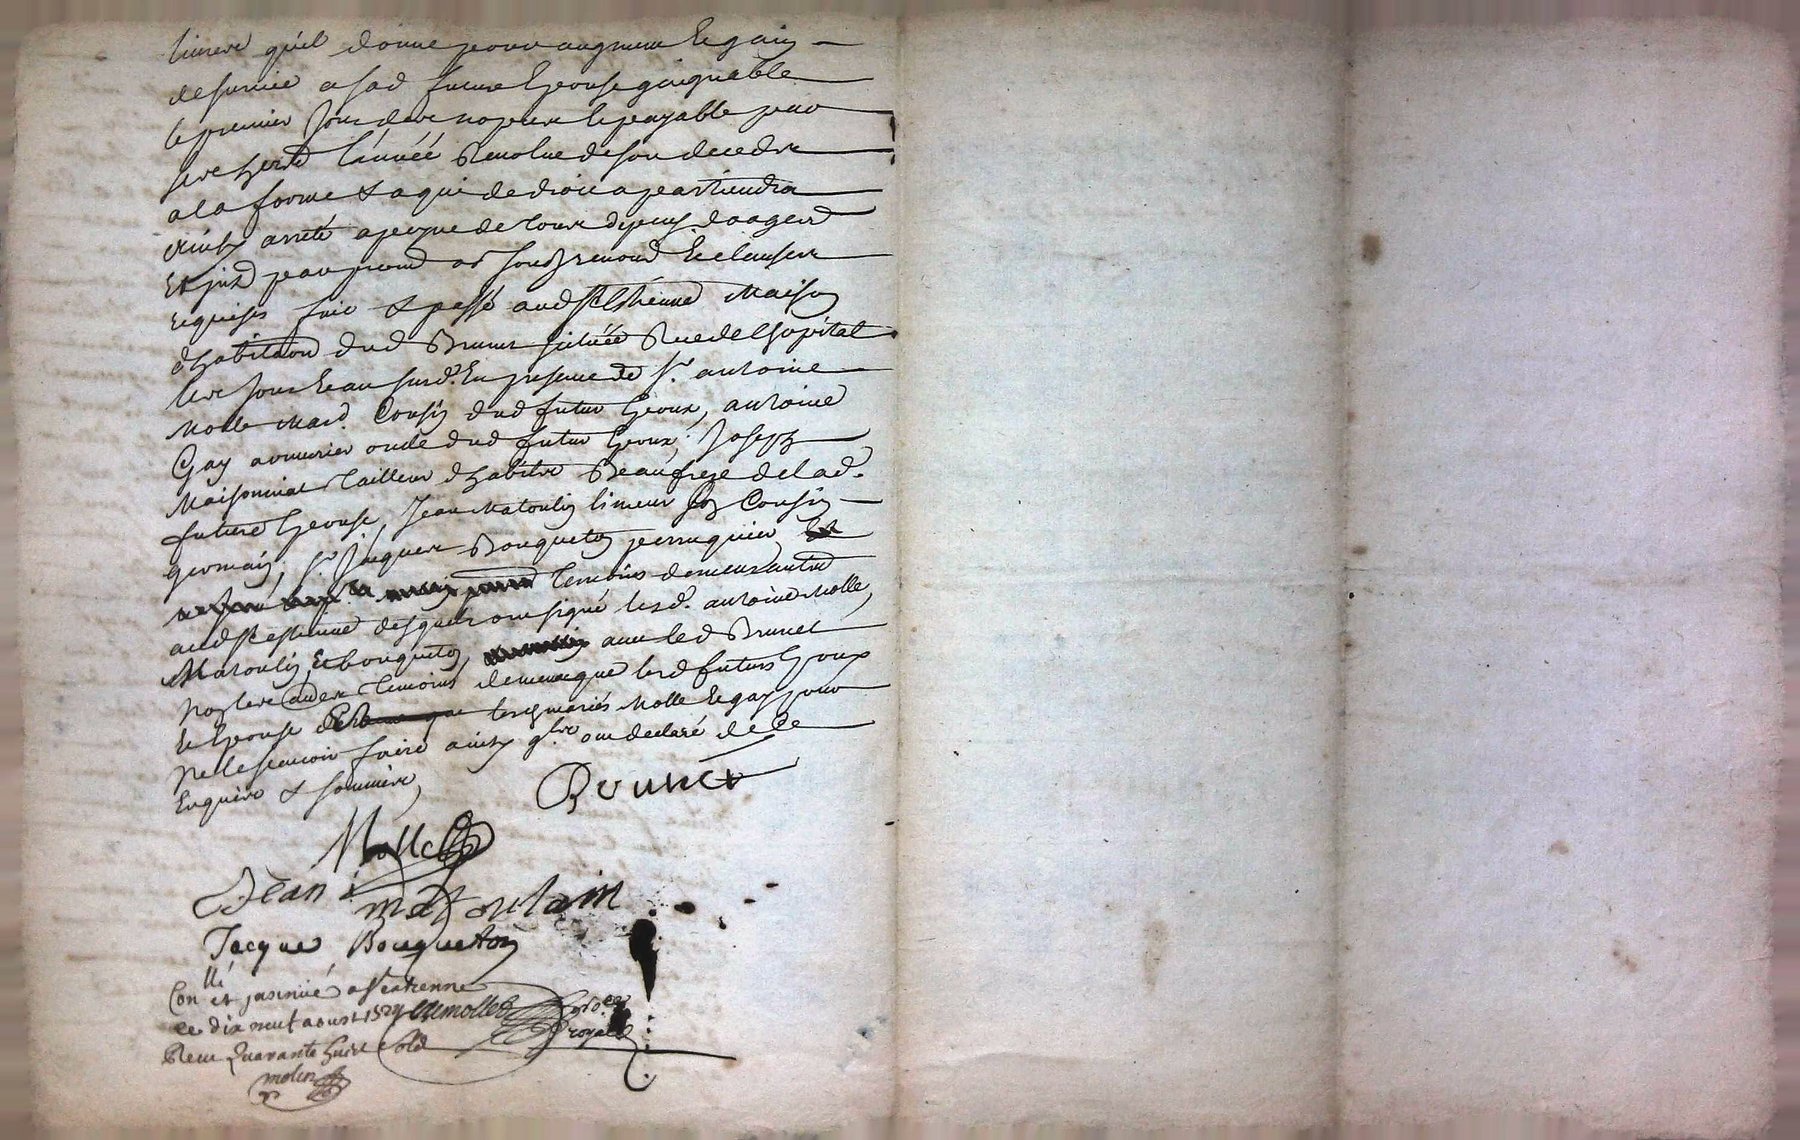 livres qu'il donne pour augment & gain
de survie a sad future Epouse gaignable
le premier jour de nopces & payable par
ses heret l'année Revolue de son decedz
a la forme & a qui de droit apartiendra
ainsy arreté a peyne de tous depens domages
Et jnz par prom ob soub renond & clauses
Requises fait & passé aud St Estienne Maison
d'habitaon dud Brunet scituée Rue de l'hopital
les jour & an susd. En presence de Sr. antoine
Molle Mard. Cousin dud futur Epoux, antoine
Gay armurier oncle dud futur Epoux, Joseph
Maisonnial Tailleur d'habitz Beaufrere de lad.
future Epouse, Jean Matoulin limeur son Cousin
germain, Sr Jacques Bouqueton perruquier
Temoins demeurants
aud St estienne desquels ont signé lesd. antoine Molle,
Matoulin, & bouqueton, avec led Brunet
non les autres temoins de meme que lesd futurs Epoux
& Epouse les mariés Molle & gay pour
ne le sçavoir faire ainsy qlz ont declaré de ce
Enquis & sommés,
Brunet
Molle
Jean matoulain
Jacque Bouqueton
Conllé et jnsinué a St estienne
ce dix neuf aoust 1524
Receu Quarante huit sols
molin
royal